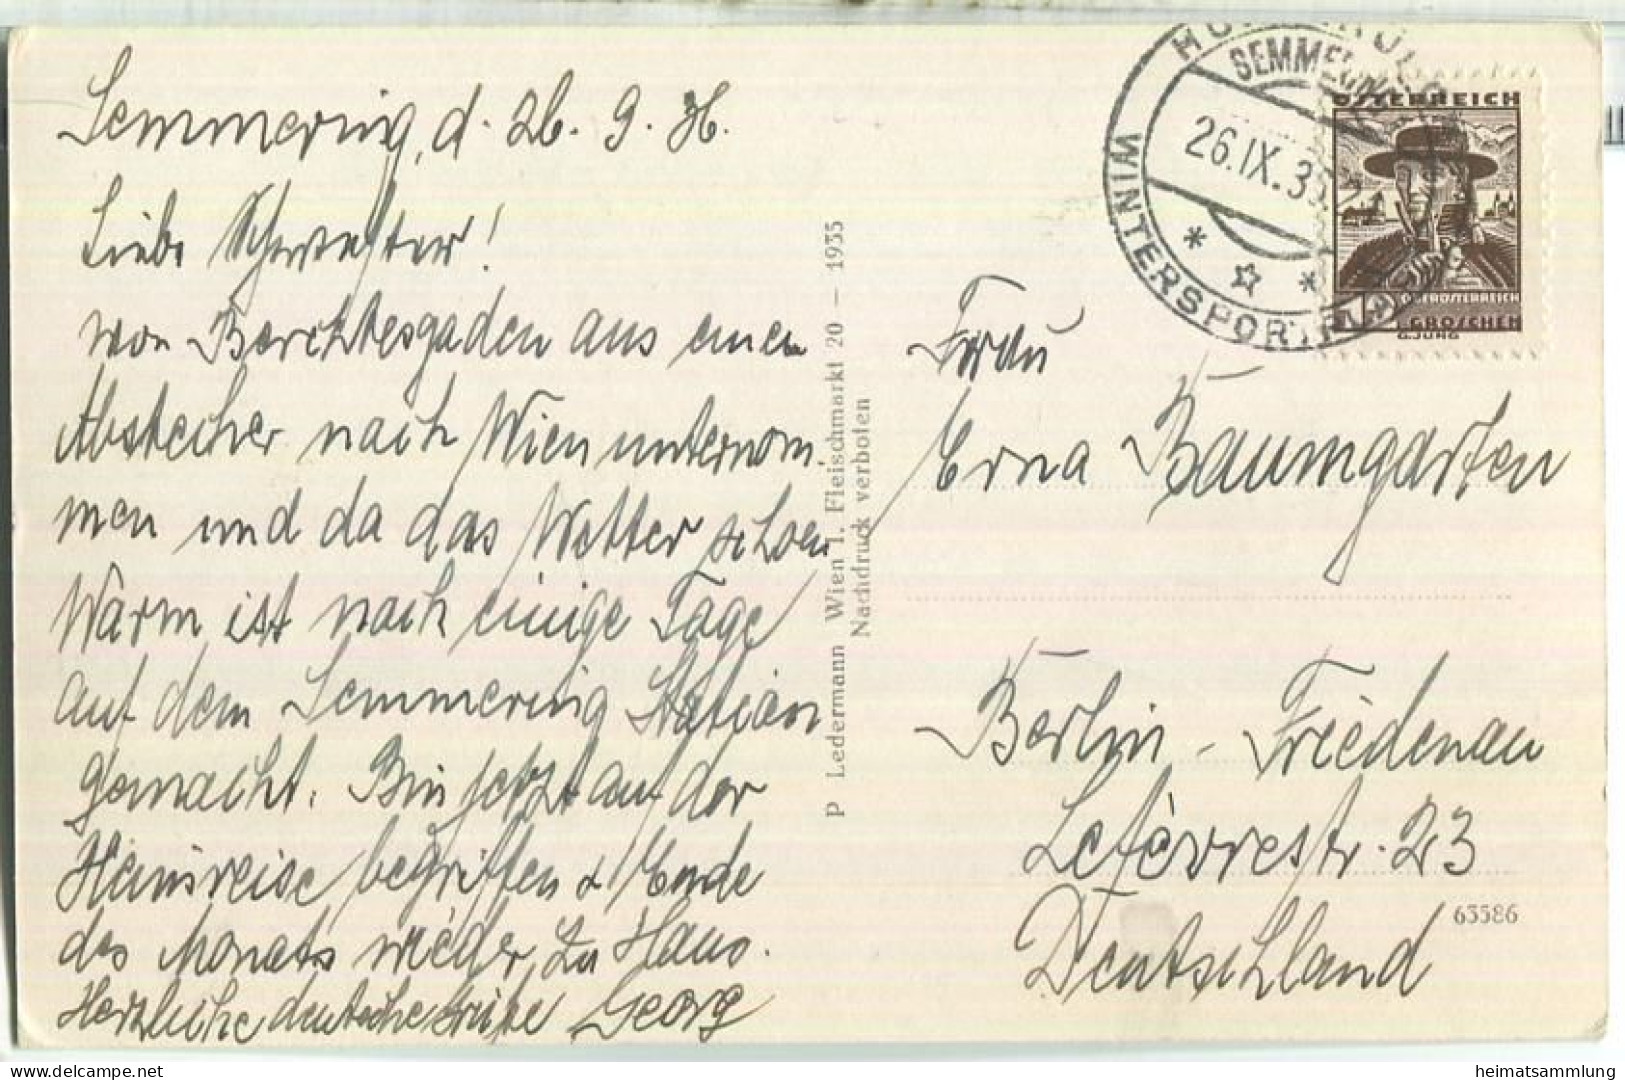 Semmering, d. 26. 9. 36.
Liebe Schwester!
von Berchtesgaden aus einen
Abstecher nach Wien unternom
men und da das Wetter schoen
Warm ist noch einige Tage
auf dem Semmering Station
gemacht. Bin jetzt auf der
Heimreise begriffen & Ende
des Monats wieder zu Haus.
Herzliche deutsche Grüße Georg
P. Ledermann Wien I., Fleischmarkt 20 — 1935
Nachdruck verboten
SEMMERING
26.IX.3
WINTERSPORTPLATZ
ÖSTERREICH
OBERÖSTERREICH
GROSCHEN
G. JUNG
Frau
Erna Baumgarten
Berlin - Friedenau
Lefèvrestr. 23
63586
Deutschland
heimatsammlung